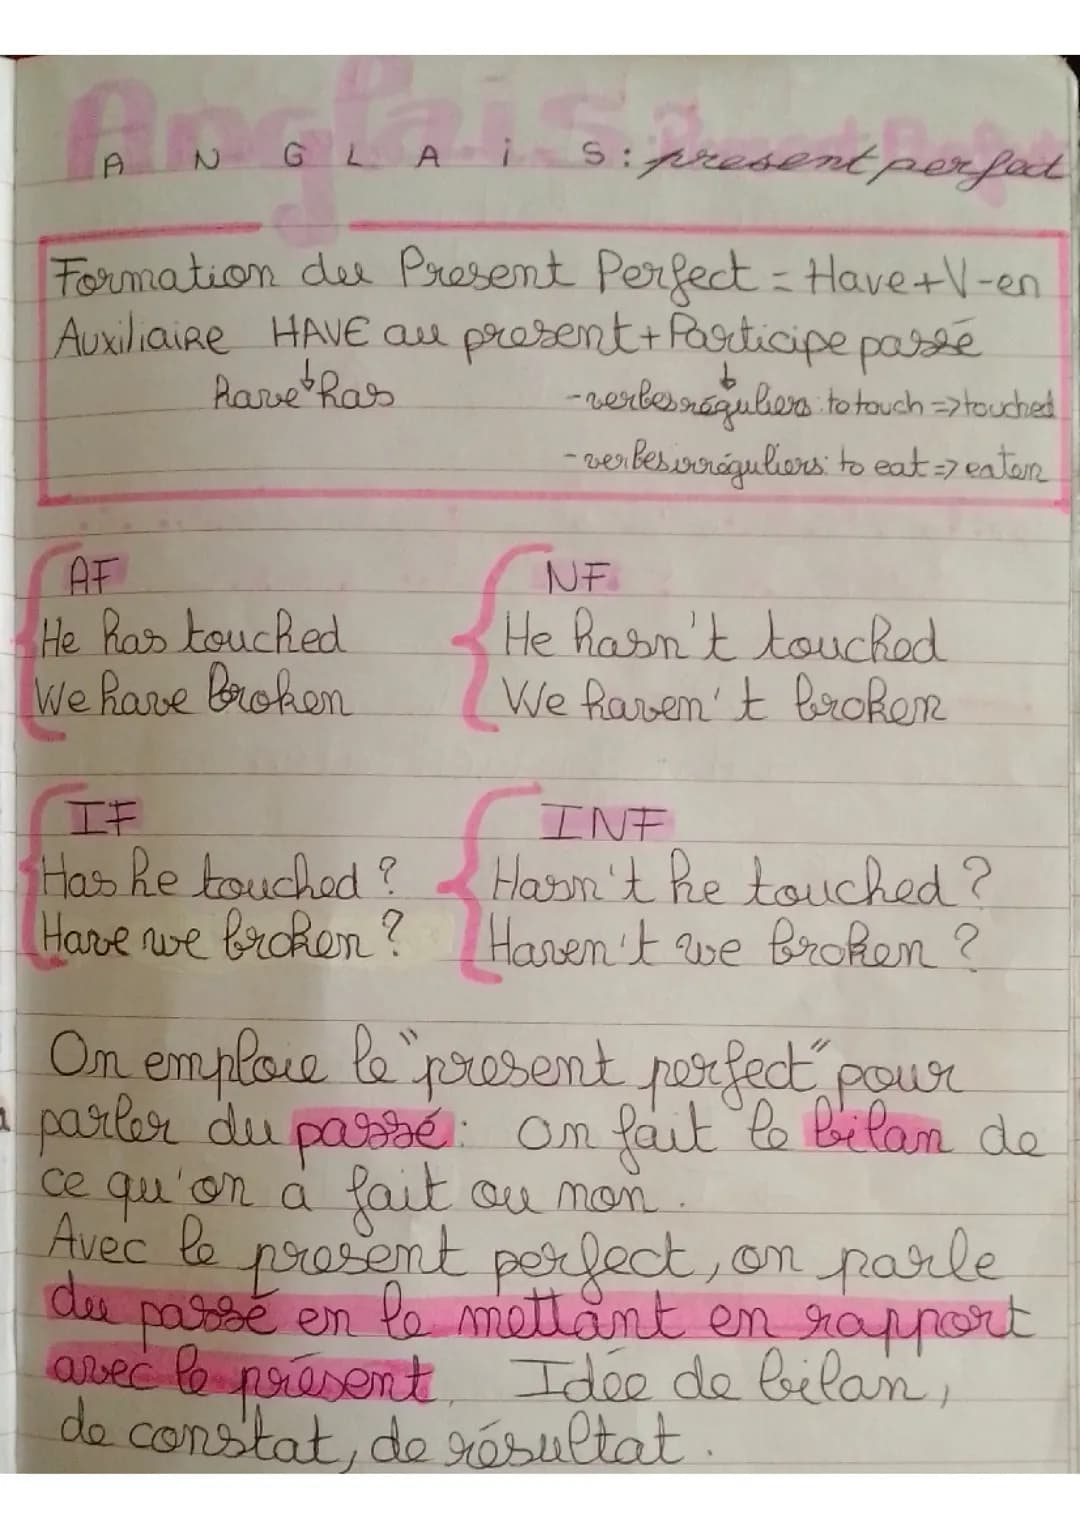 Anglais: Present Perfect
ANGLAiS: present perfect
Formation du Present Perfect = Have+V-en
Auxiliaire HAVE au present + Participe passé
have has
-verbes réguliers: to touch => touched
-verbes irréguliers: to eat => eaten
AF
He has touched
We have broken
NF
He hasn't touched
We haven't broken
IF
Has he touched ?
Have we broken ?
INF
Hasn't he touched ?
Haven't we broken ?
On emploie le "present perfect" pour
parler du passé: on fait le bilan de
ce qu'on a fait ou non.
Avec le present perfect, on parle
du passé en le mettant en rapport
avec le présent. Idée de bilan,
de constat, de résultat.